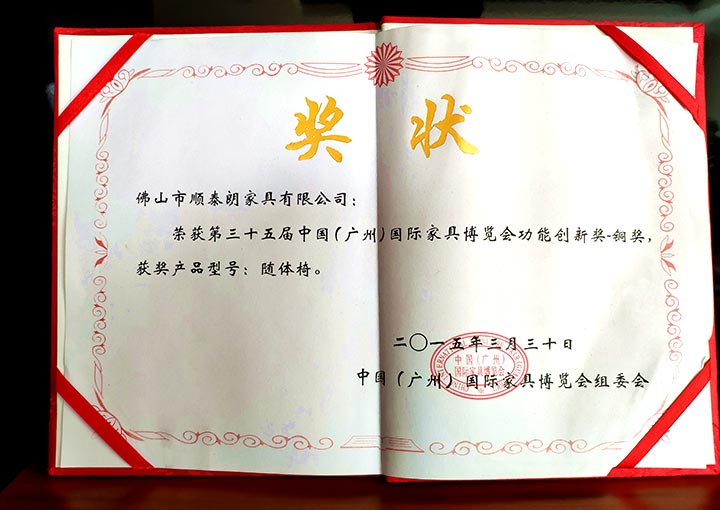 奖状
佛山市顺泰朗家具有限公司：
荣获第三十五届中国（广州）国际家具博览会功能创新奖-铜奖，
获奖产品型号：随体椅。
二〇一五年三月三十日
中国（广州）国际家具博览会组委会
中国（广州）
国际家具博览会